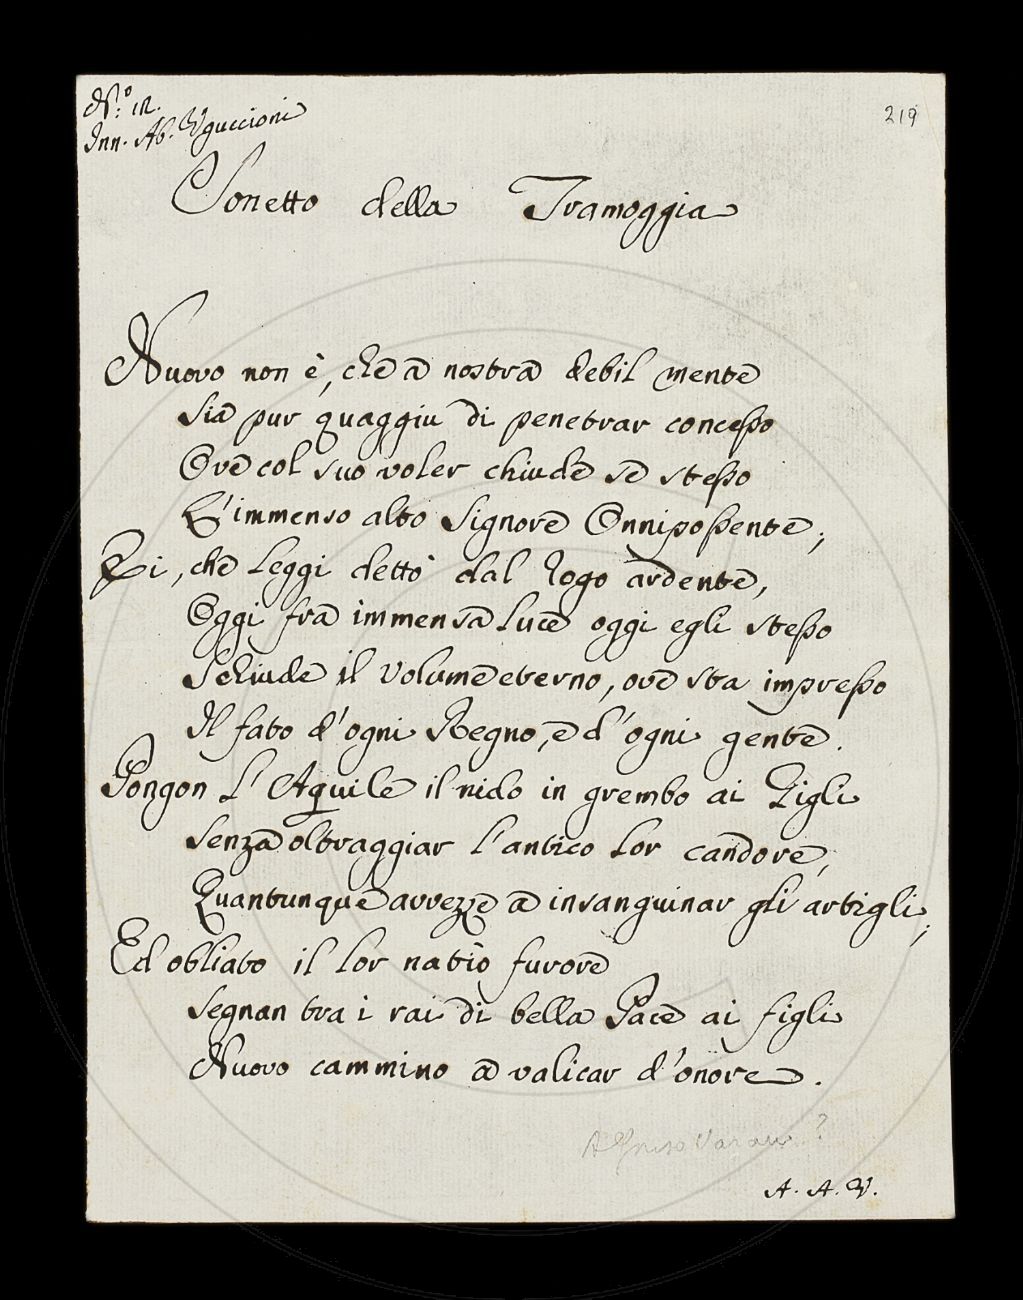 N.º 12.
Inn. Ab. Uguccioni
219
Sonetto della Tramoggia
Nuovo non è, che a nostra debil mente
Sia pur quaggiu di penetrar concesso
Ove col suo voler chiude se stesso
L'immenso alto Signore Onnipossente;
Ei, che Leggi dettò dal rogo ardente,
Oggi fra immensa Luce oggi egli stesso
Schiude il Volume eterno, ove sta impresso
Il fato d'ogni Regno, e d'ogni gente.
Pongon l'Aquile il nido in grembo ai Gigli
Senza oltraggiar l'antico Lor candore,
Quantunque avvezze a insanguinar gli artigli;
Ed obliato il lor natio furore
Segnan tra i rai di bella Pace ai figli
Nuovo cammino a valicar d'onore.
Alfonso Varano?
A. A. V.